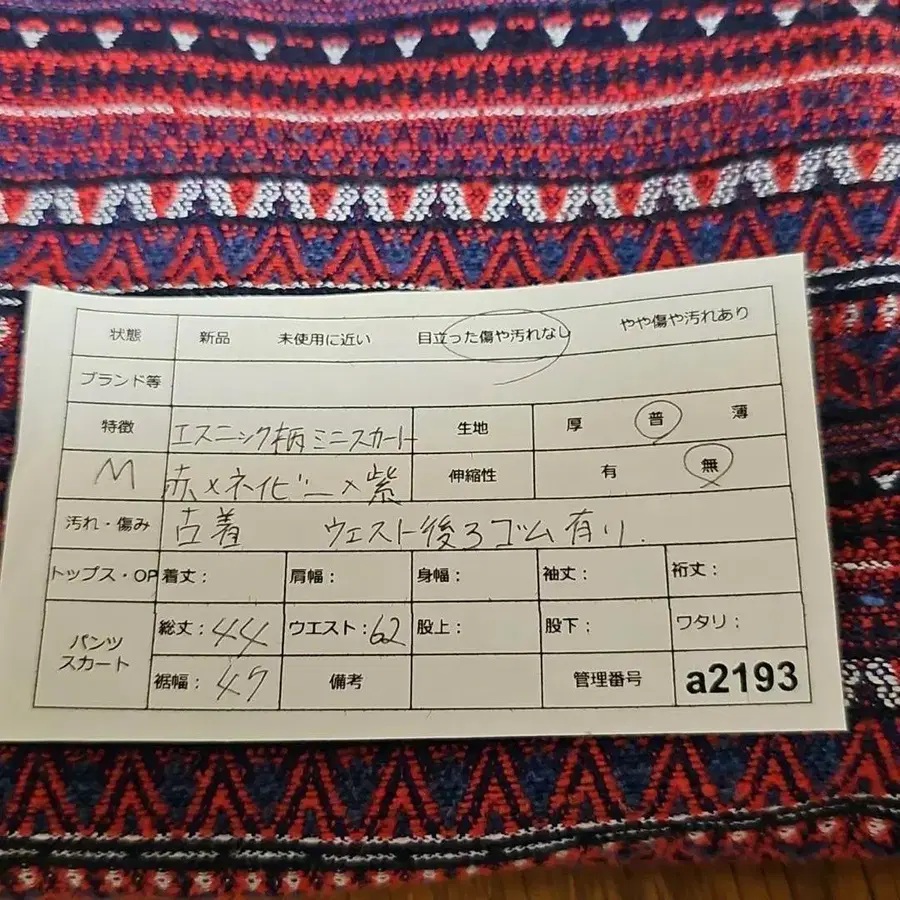 状態 新品 未使用に近い 目立った傷や汚れなし やや傷や汚れあり
ブランド等
特徴 エスニック柄ミニスカート 生地 厚 普 薄
M 赤×ネイビー×紫 伸縮性 有 無
汚れ・傷み 古着 ウエスト後ろゴム有り.
トップス・OP 着丈: 肩幅: 身幅: 袖丈: 裄丈:
パンツ スカート 総丈:44 ウエスト:62 股上: 股下: ワタリ:
裾幅:47 備考 管理番号 a2193